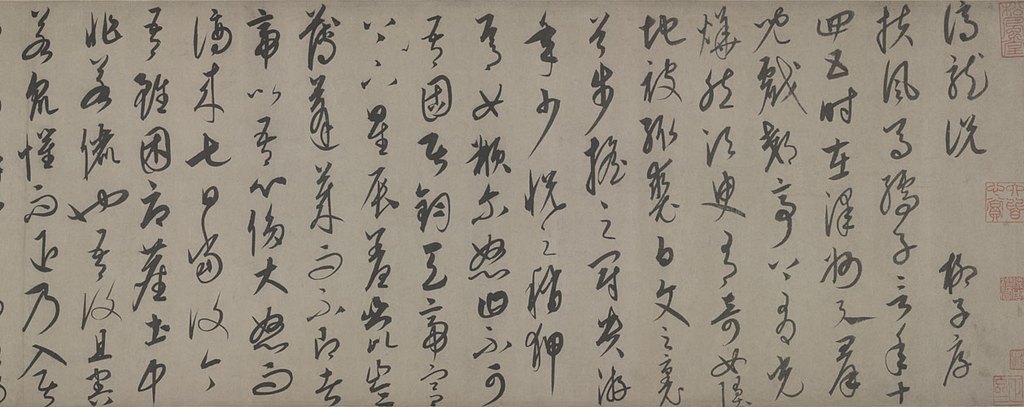 謫龍說 柳子厚
扶風馬孺子言年十
四五時在澤州與羣
兒戲郊亭上有光
曄然須臾有奇女墜
地被緅裘白文之裏
首步搖之冠貴游
年少悅之稍狎
焉女頩尔怒曰不可
吾固居鈞天帝宮
下上星辰羞崑崙
薄蓬萊而不即者
帝以吾心侈大怒而
謫來七日當復今
吾雖困辱塵土中
非若儷也吾復且害
若衆懼而退乃入居